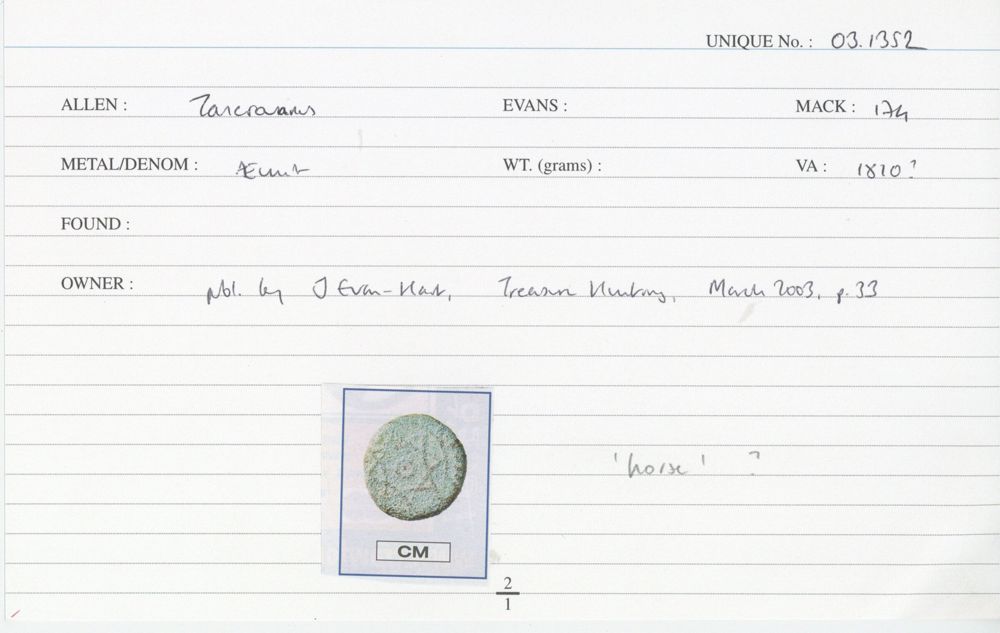 UNIQUE No. : 03.1352
ALLEN : Tasciovanus EVANS : MACK : 174
METAL/DENOM : Æ unit WT. (grams) : VA : 1820?
FOUND :
OWNER : publ. by J Evan-Hart, Treasure Hunting, March 2003, p.33
'horse' ?
CM
2
1